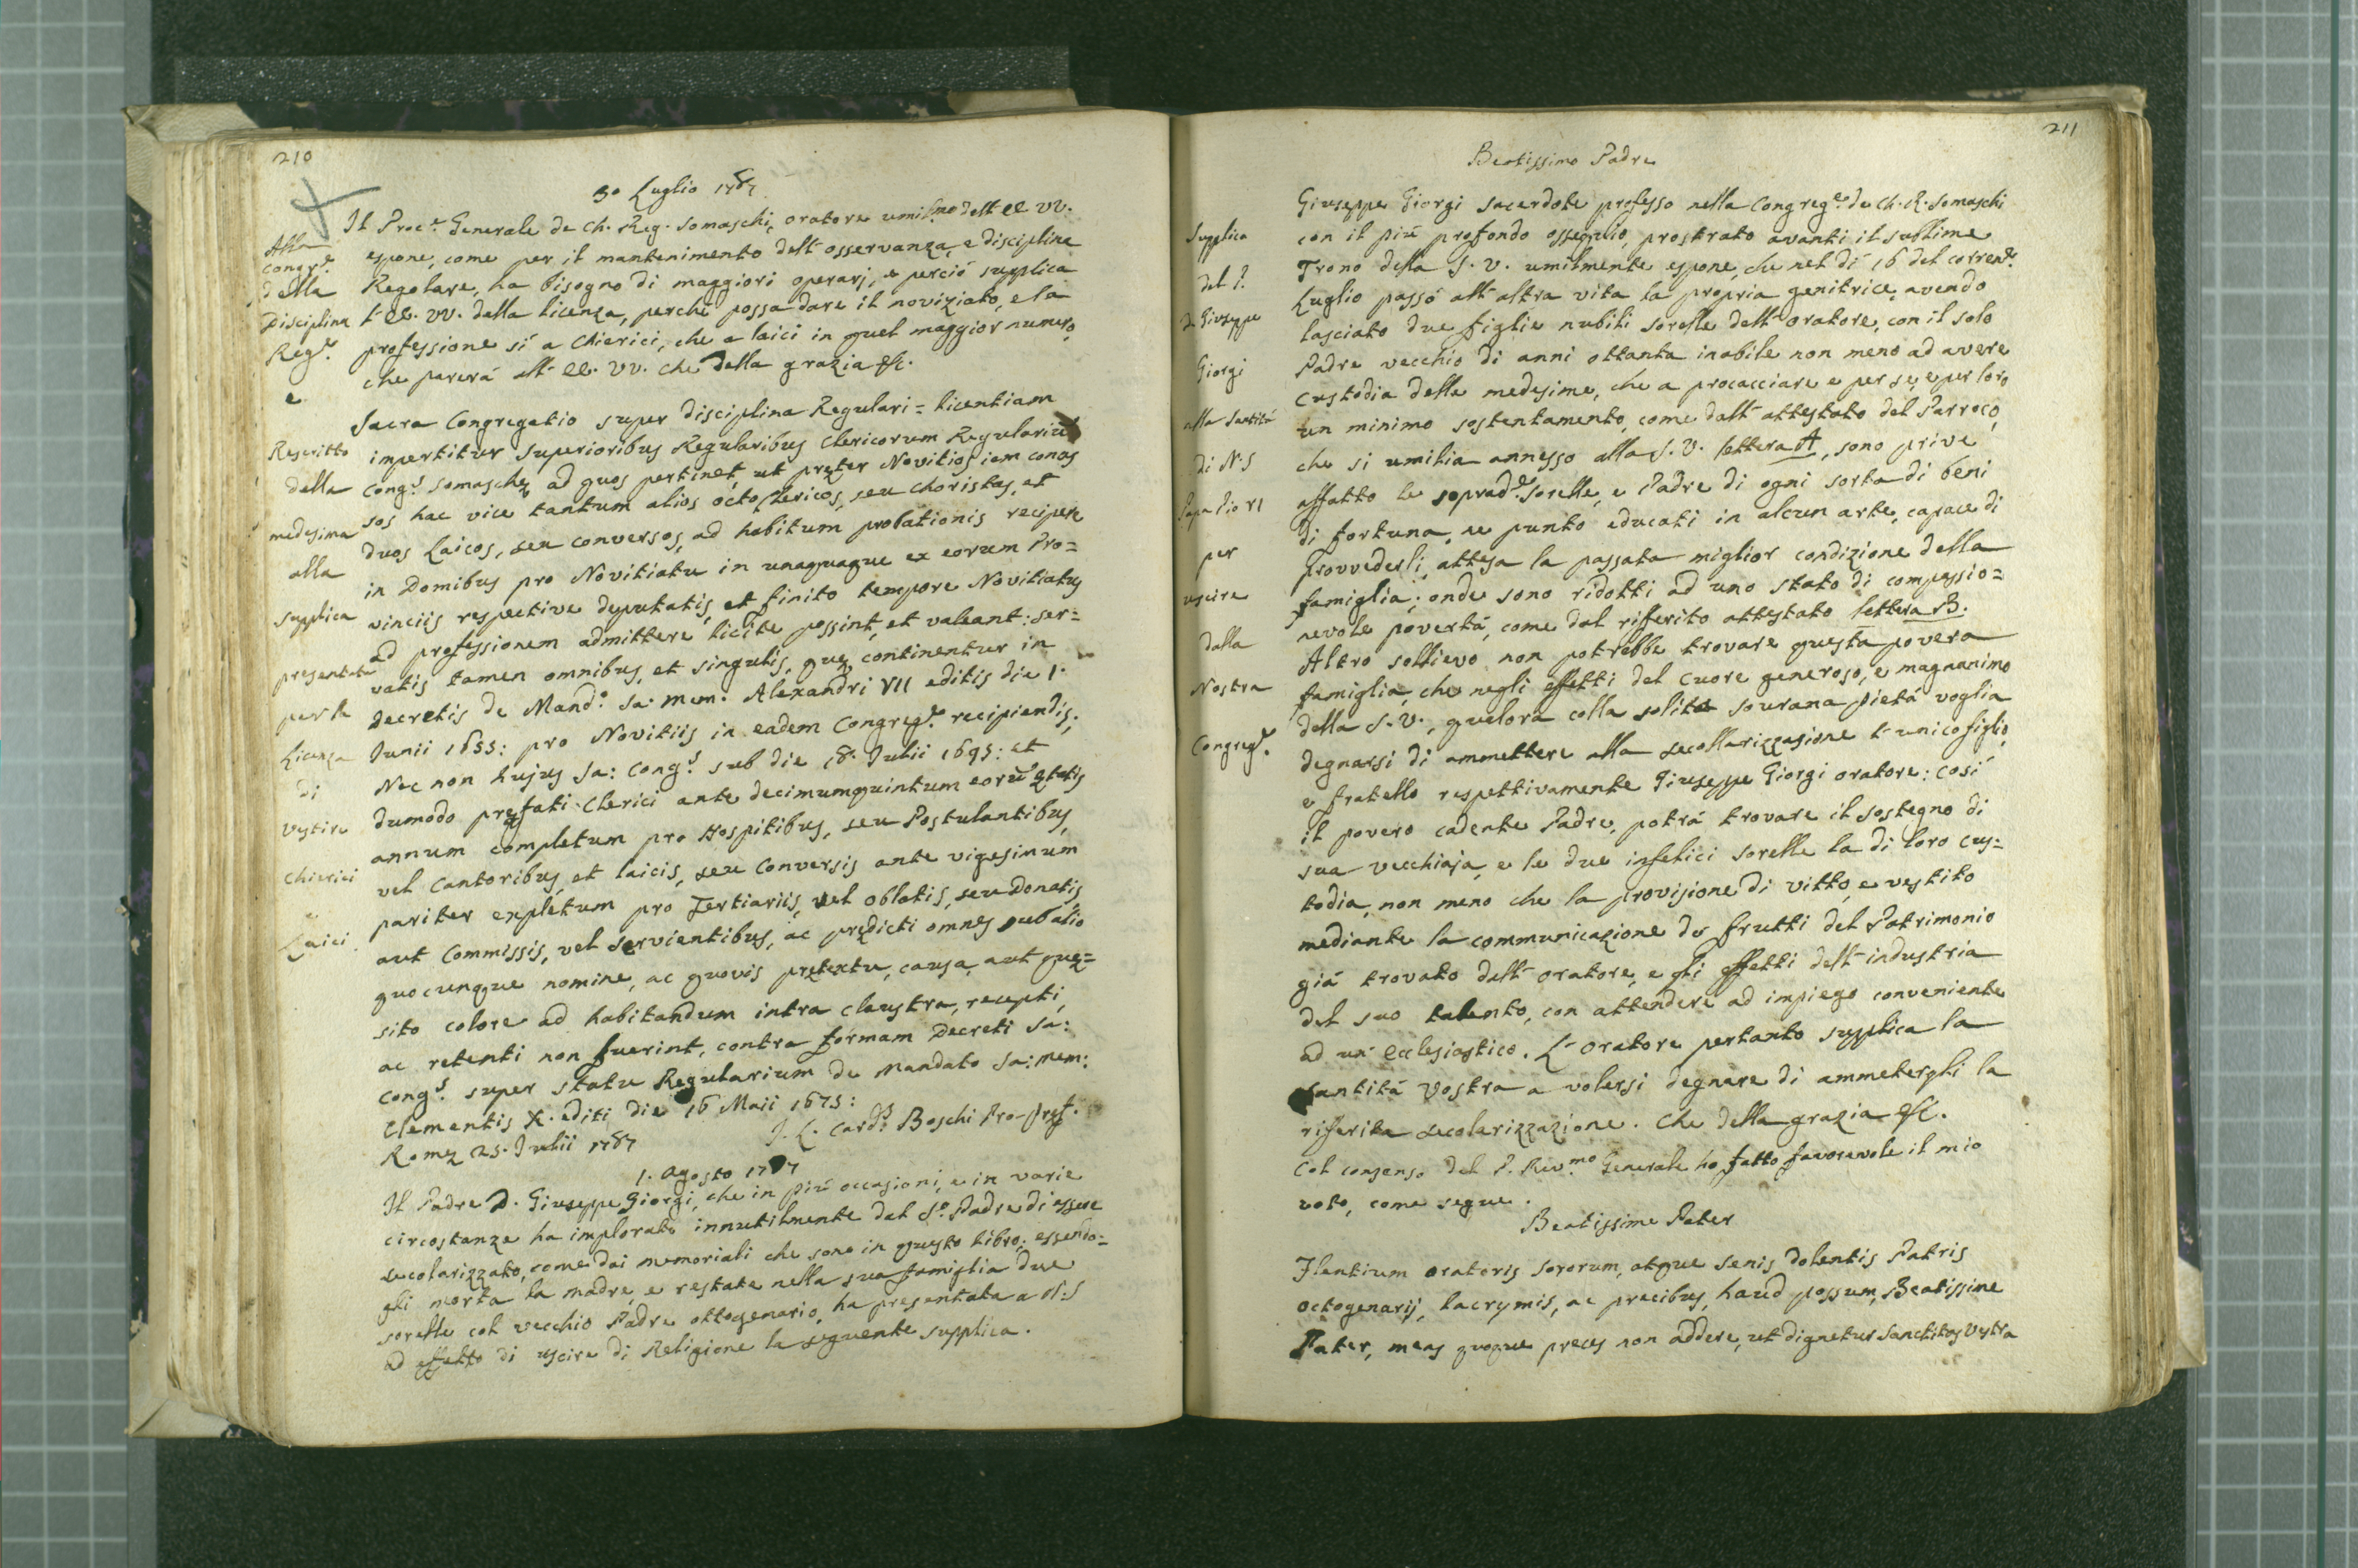 210
30 Luglio 1787
Il Proc.e Generale de Ch. Reg. Somaschi, oratore umil.mo dell' EE VV.
espone, come per il mantenimento dell' osservanza, e disciplina
Regolare, ha bisogno di maggiori operarj, e perciò supplica
l' EE. VV. della licenza, perche possa dare il noviziato, e la
professione sí a Chierici, che a laici in quel maggior numero,
che parerà all' EE. VV. che della grazia &c.
Alla
Congr.e
della
Disciplina
Reg.e
e
Rescritto
della
medesima
alla
supplica
presentata
per la
Licenza
di
Vestire
Chierici
e
Laici
Sacra Congregatio super disciplina Regulari = licentiam
impertitur Superioribus Regularibus Clericorum Regulariũ
Cong.s Somaschę, ad quos pertinet, ut pręter Novitios jam conces
sos hac vice tantum alios octo Clericos, seu Choristas, et
duos Laicos, seu conversos, ad habitum probationis recipere
in Domibus pro Novitiatu in unaquaque ex eorum Pro=
vinciis respective deputatis, et finito tempore Novitiatus
ad professionem admittere licite possint, et valeant: ser=
vatis tamen omnibus, et singulis, quę continentur in
Decretis de Mand.o Sa: mem. Alexandri VII editis die 1.
Junii 1655: pro Novitiis in eadem Congreg.e recipiendis;
Nec non hujus Sa: Cong.s sub die 18. Julii 1695: et
dumodo pręfati Clerici ante decimumquintum eorũ ętatis
annum completum pro Hospitibus, seu Postulantibus,
vel Cantoribus, et laicis, seu Conversis ante vigesimum
pariter expletum pro Tertiariis, vel oblatis, seu Donatis
aut Commissis, vel servientibus, ac prędicti omnes sub alio
quocunque nomine, ac quovis prętextu, causa, aut quę=
sito colore ad habitandum intra claustra, recepti,
ac retenti non fuerint, contra formam Decreti Sa:
Cong.s super statu Regularium de Mandato Sa: mem:
Clementis X. editi die 16 Maii 1675:
Romę 25. Julii 1787
J. C. Card.s Boschi Pro-Pręf.
1. Agosto 1787
Il Padre D. Giuseppe Giorgi, che in più occasioni, e in varie
circostanze ha implorato innutilmente dal S.o Padre di essere
secolarizzato, come dai memoriali che sono in questo libro; essendo=
gli morta la madre, e restate nella sua famiglia due
sorelle col vecchio Padre ottogenario, ha presentata a N:S
ad effetto di uscire di Religione la seguente supplica.
211
Beatissimo Padre
Supplica
del P.
D. Giuseppe
Giorgi
alla Santità
di N.S
Papa Pio VI
per
uscire
dalla
Nostra
Congreg.e
Giuseppe Giorgi sacerdote professo nella Congreg.e de Ch. R. Somaschi
con il più profondo ossequio, prostrato avanti il sublime
Trono della S. V. umilmente espone, che nel dì 16 del corren.e
Luglio passò all' altra vita la propria genitrice, avendo
lasciato due figlie nubili sorelle dell' oratore, con il solo
Padre vecchio di anni ottanta inabile non meno ad avere
custodia delle medesime, che a procacciare e per se, e per loro
un minimo sostentamento, come dall' attestato del Parroco,
che si umilia annesso alla S. V. lettera A, sono prive
affatto le soprad.e Sorelle, e Padre di ogni sorta di beni
di fortuna, ne punto educati in alcun arte, capace di
provvederli, attesa la passata miglior condizione della
famiglia; onde sono ridotti ad uno stato di compassio=
nevole povertà, come dal riferito attestato lettera B.
Altro sollievo non potrebbe trovare questa povera
famiglia, che negli effetti del Cuore generoso, e magnanimo
della S. V., qualora colla solita sourana pietà voglia
degnarsi di ammettere alla secollarizzazione l' unico figlio,
e fratello respettivamente Giuseppe Giorgi oratore: così
il povero cadente Padre, potrà trovare il sostegno di
sua vecchiaja, e le due infelici sorelle la di loro cus=
todia, non meno che la provisione di vitto, e vestito
mediante la communicazione de frutti del Patrimonio
già trovato dall' oratore, e gli effetti dell' industria
del suo talento, con attendere ad impiego conveniente
ad un' Ecclesiastico. L' Oratore pertanto supplica la
Santità Vostra a volersi degnare di ammetergli la
riferita secolarizzazione. Che della grazia &c.
Col consenso del P. Rev.mo Generale ho fatto favorevole il mio
voto, come segue.
Beatissime Pater
Flentium oratoris sororum, atque senis dolentis Patris
octogenarij, lacrymis, ac precibus, haud possum, Beatissime
Pater, meas quoque preces non addere, ut dignetur Sanctitas Vestra